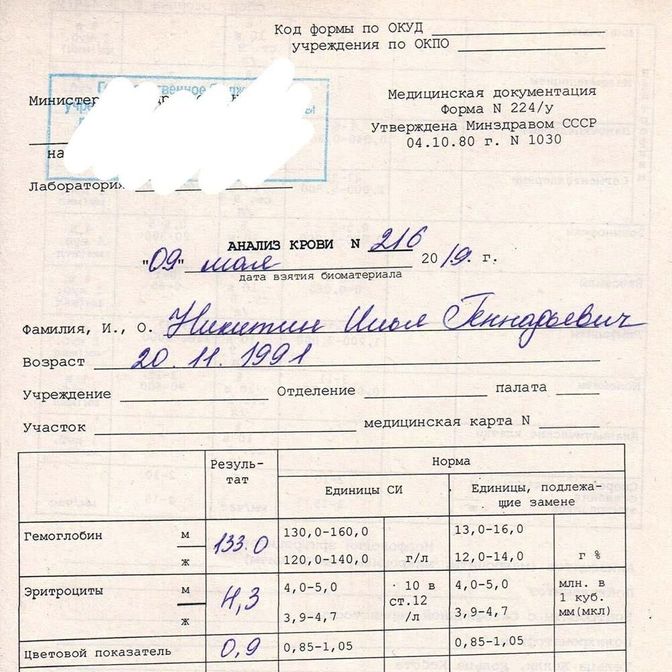 Код формы по ОКУД
учреждения по ОКПО
Медицинская документация
Форма N 224/у
Утверждена Минздравом СССР
04.10.80 г. N 1030
на
Лаборатория
АНАЛИЗ КРОВИ N 216
"09" мая 2019. г.
дата взятия биоматериала
Фамилия, И., О. Никитин Илья Геннадьевич
Возраст 20.11.1991
Учреждение Отделение Палата
Участок медицинская карта N
Резуль-
тат
Норма
Единицы СИ
Единицы, подлежа-
щие замене
Гемоглобин м 133.0 130,0-160,0 13,0-16,0
ж 120,0-140,0 г/л 12,0-14,0 г %
Эритроциты м 4,3 4,0-5,0 · 10 в 4,0-5,0 млн. в
ст.12 1 куб.
ж 3,9-4,7 /л 3,9-4,7 мм(мкл)
Цветовой показатель 0,9 0,85-1,05 0,85-1,05